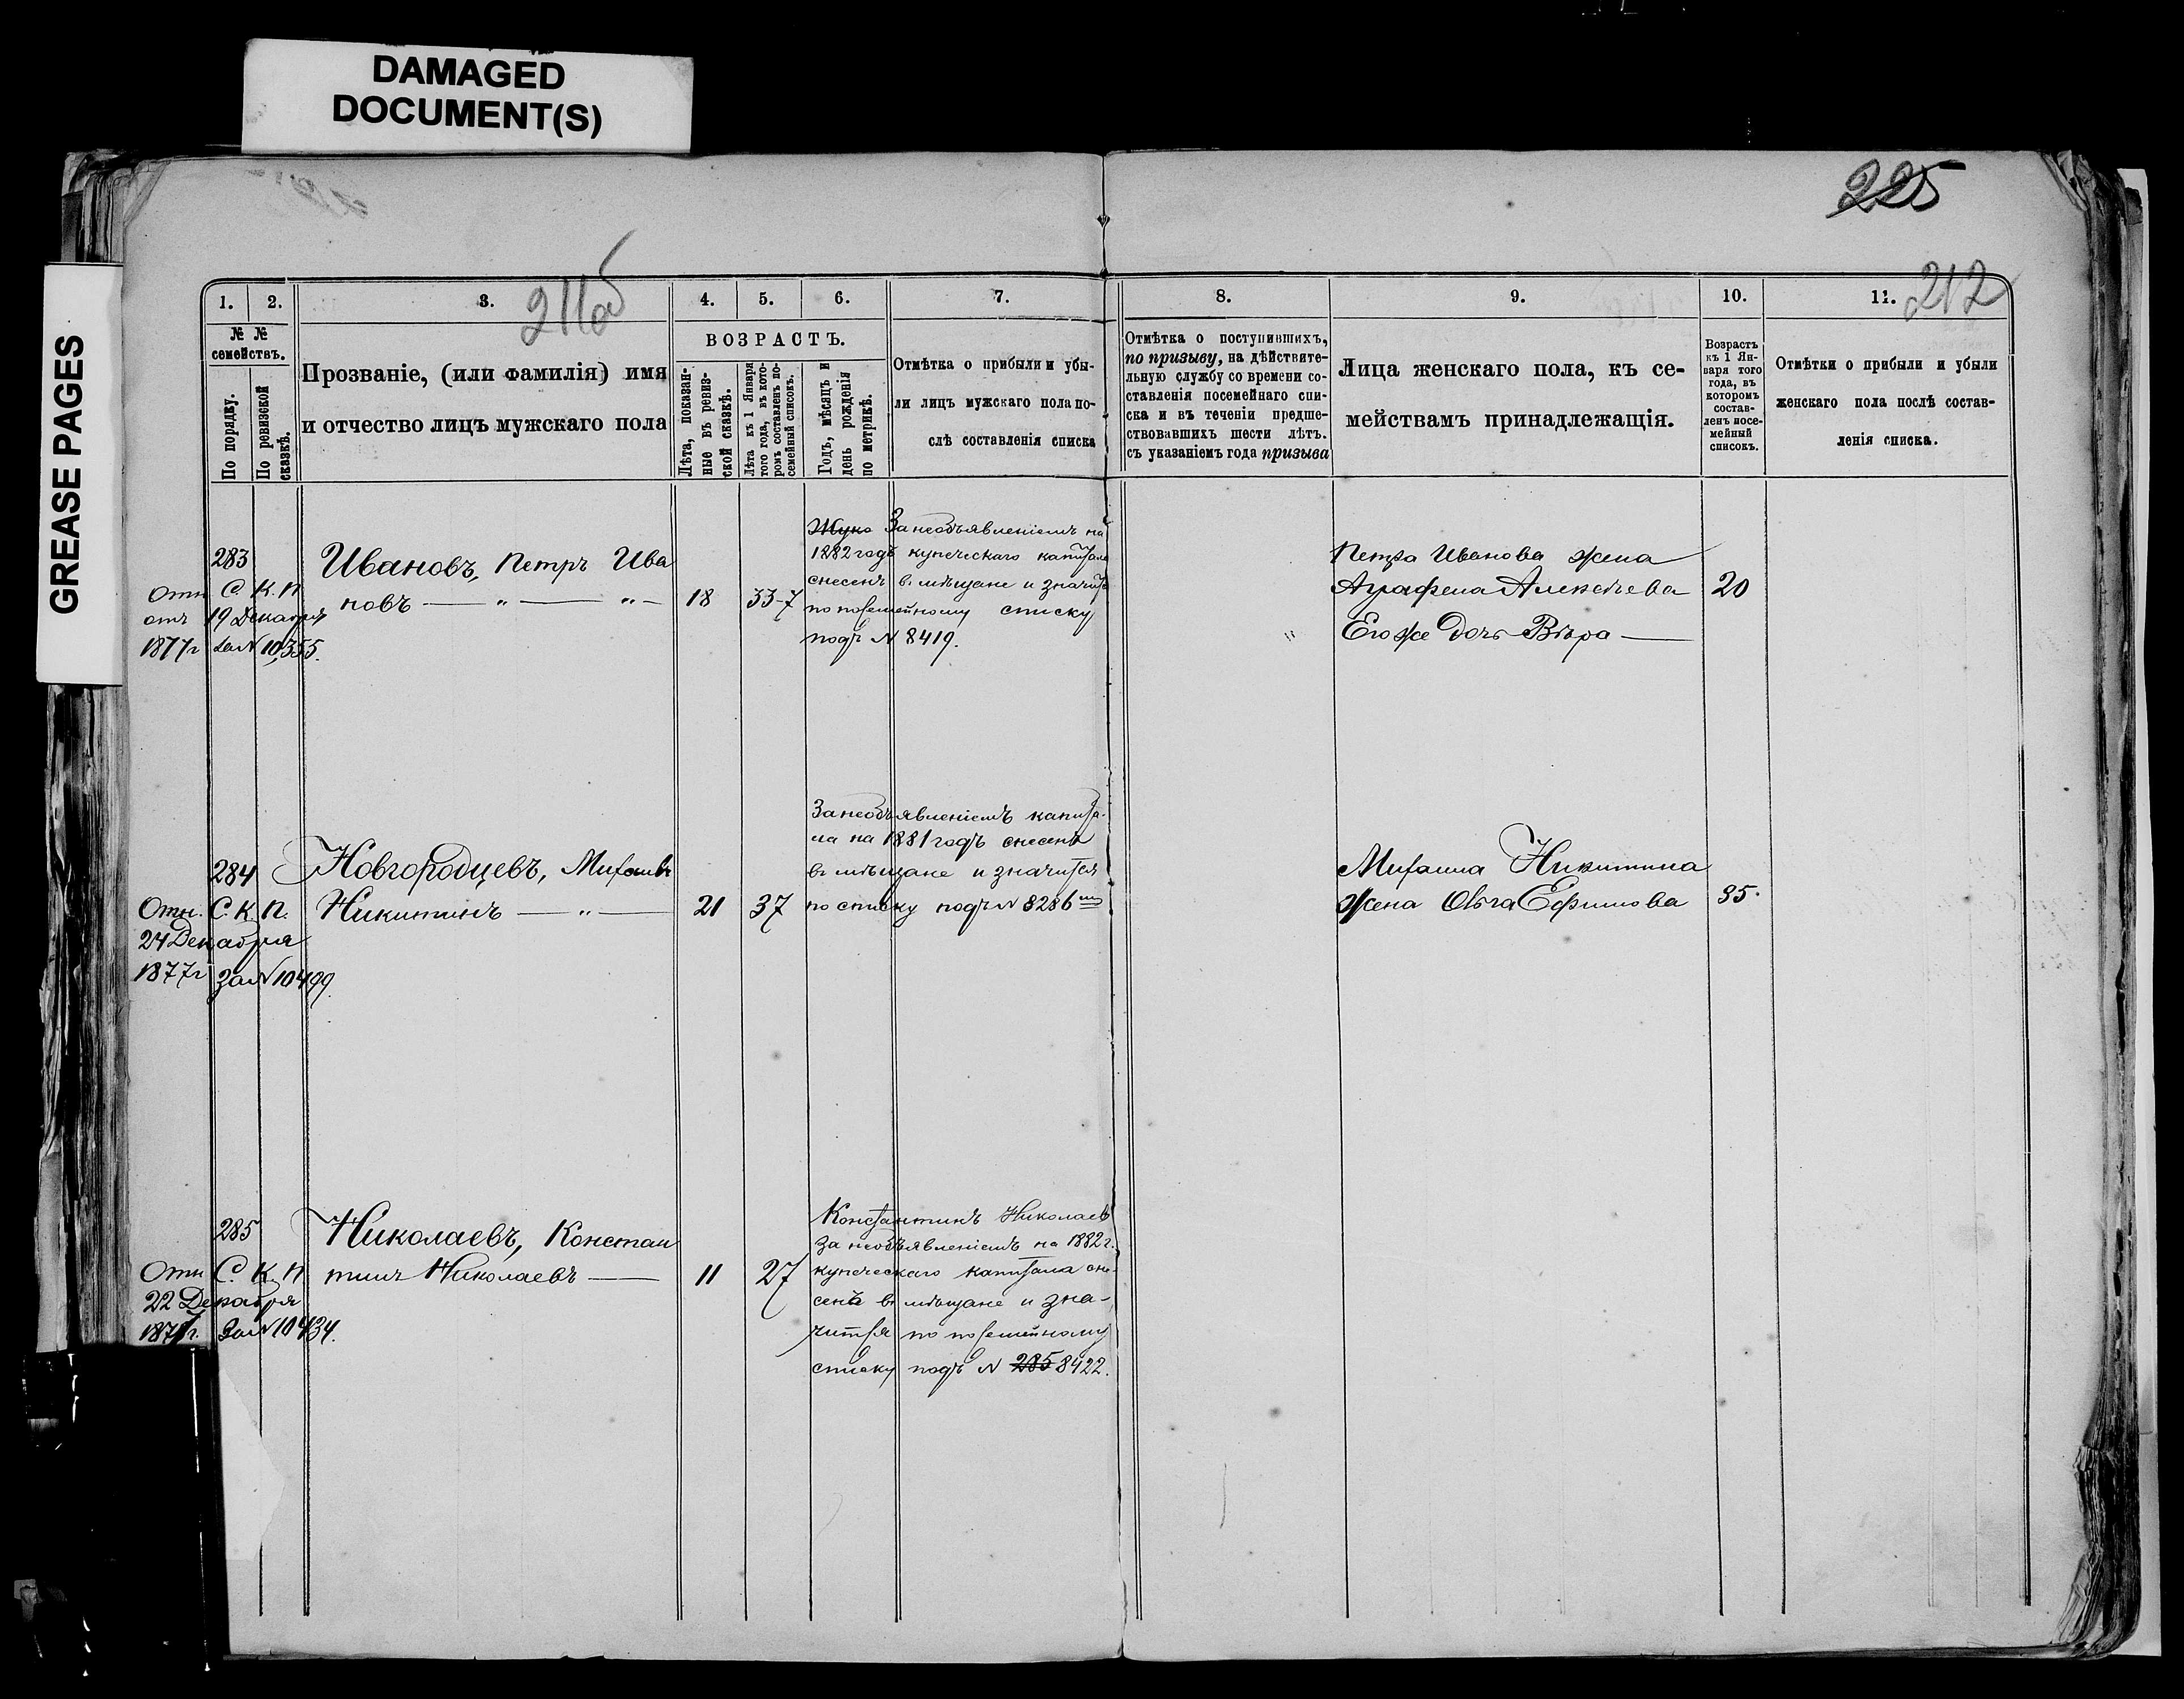 DAMAGED
DOCUMENT(S)
GREASE PAGES
225
211об
212
1.
2.
3.
4.
5.
6.
7.
8.
9.
10.
11.
№ №
семействъ.
По порядку.
По ревизской
сказкѣ.
Прозваніе, (или фамилія) имя
и отчество лицъ мужскаго пола
ВОЗРАСТЪ.
Лѣта, показан-
ные въ ревиз-
ской сказкѣ.
Лѣта къ 1 Января
того года, въ кото-
ромъ составленъ по-
семейный списокъ.
Годъ, мѣсяцъ и
день рожденія
по метрикѣ.
Отмѣтка о прибыли и убы-
ли лицъ мужскаго пола по-
слѣ составленія списка
Отмѣтка о поступившихъ,
по призыву, на дѣйствите-
льную службу со времени со-
ставленія посемейнаго спи-
ска и въ теченіи предше-
ствовавшихъ шести лѣтъ.
съ указаніемъ года призыва
Лица женскаго пола, къ се-
мействамъ принадлежащія.
Возрастъ
къ 1 Ян-
варя того
года, въ
которомъ
состав-
ленъ посе-
мейный
списокъ.
Отмѣтки о прибыли и убыли
женскаго пола послѣ состав-
ленія списка.
283
Отн С. К. П
отъ 19 Декабря
1877г за N 10,355.
Ивановъ, Петръ Ива
новъ — „ — „ —
18
33-7
За необъявленіемъ на
1882 годъ купеческаго капитала
снесенъ въ мѣщане и значится
по посемейному списку
подъ N 8419.
„
Петра Иванова жена
Аграфена Алексѣева
20
Его же дочь Вѣра —
284
Отн. С. К. П.
24 Декабря
1877г за N 10499.
Новгородцевъ, Михаилъ
Никитинъ — „ —
21
37
За необъявленіемъ капита-
ла на 1881 годъ снесенъ
въ мѣщане и значится
по списку подъ N 8286мъ
Михаила Никитина
жена Ольга Ефимова
35.
285
Отн С. К. П
22 Декабря
1877г. За N 10434.
Николаевъ, Констан
тинъ Николаевъ —
11
27
Константинъ Николаевъ
за необъявленіемъ на 1882 г.
купеческаго капитала сне-
сенъ въ мѣщане и зна-
чится по посемейному
списку подъ N 285 8422.